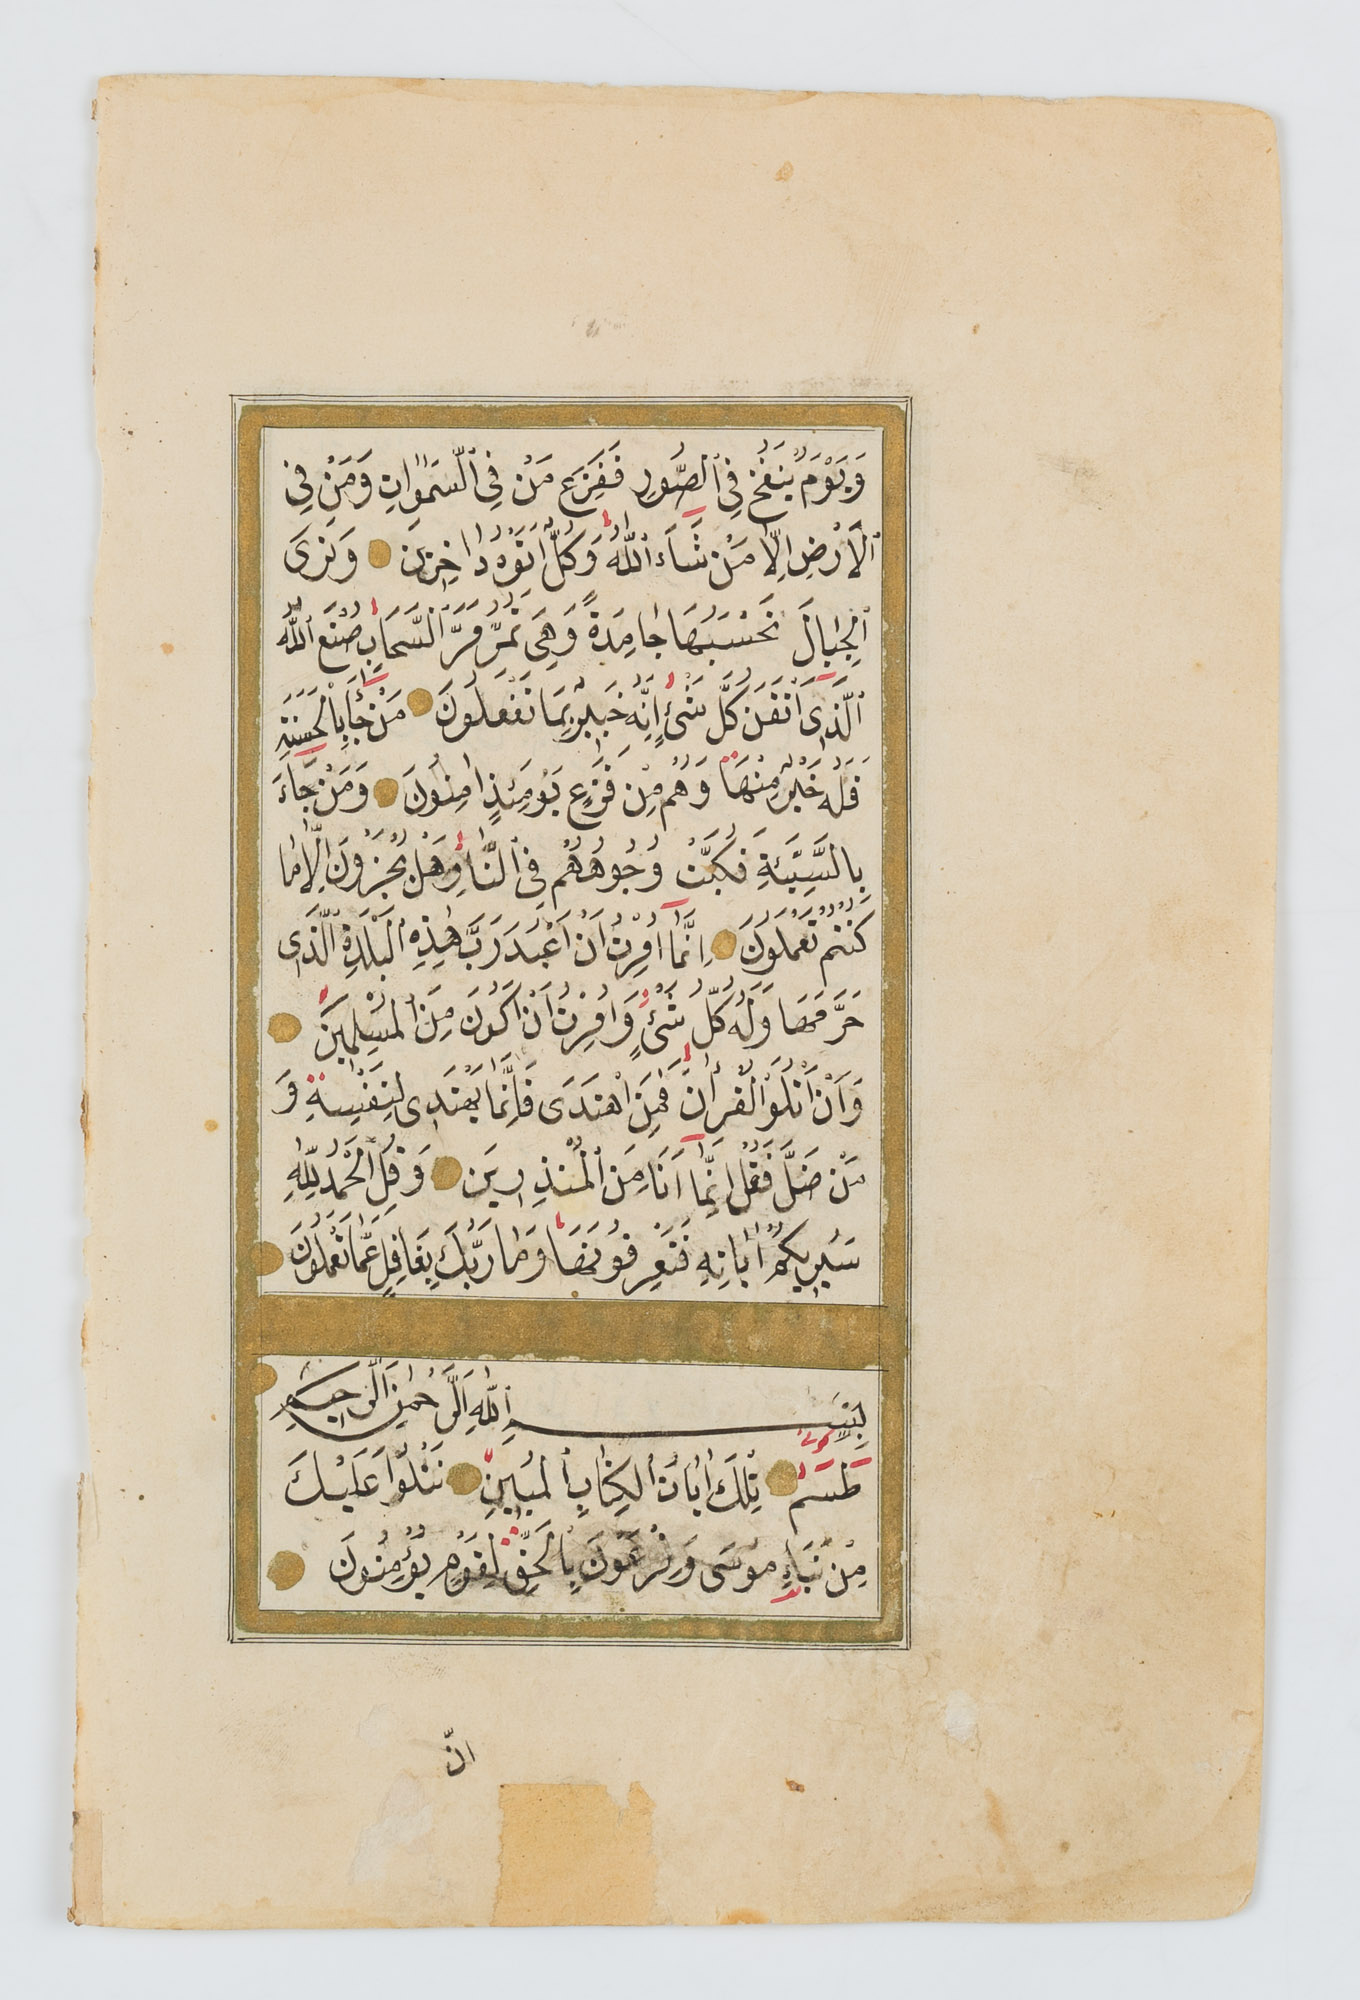 وَيَوْمَ يُنْفَخُ فِى ٱلصُّورِ فَفَزِعَ مَنْ فِى ٱلسَّمٰوَاتِ وَمَنْ فِى
ٱلْاَرْضِ اِلَّا مَنْ شَآءَ ٱللّٰهُ وَكُلٌّ اَتَوْهُ دَاخِرِينَ وَتَرَى
ٱلْجِبَالَ تَحْسَبُهَا جَامِدَةً وَهِىَ تَمُرُّ مَرَّ ٱلسَّحَابِ صُنْعَ ٱللّٰهِ
ٱلَّذِى اَتْقَنَ كُلَّ شَىْءٍ اِنَّهُ خَبِيرٌ بِمَا تَفْعَلُونَ مَنْ جَآءَ بِالْحَسَنَةِ
فَلَهُ خَيْرٌ مِنْهَا وَهُمْ مِنْ فَزَعٍ يَوْمَئِذٍ اٰمِنُونَ وَمَنْ جَآءَ
بِالسَّيِّئَةِ فَكُبَّتْ وُجُوهُهُمْ فِى ٱلنَّارِ هَلْ تُجْزَوْنَ اِلَّا مَا
كُنْتُمْ تَعْمَلُونَ اِنَّمَآ اُمِرْتُ اَنْ اَعْبُدَ رَبَّ هٰذِهِ ٱلْبَلْدَةِ ٱلَّذِى
حَرَّمَهَا وَلَهُ كُلُّ شَىْءٍ وَاُمِرْتُ اَنْ اَكُونَ مِنَ ٱلْمُسْلِمِينَ
وَاَنْ اَتْلُوَا ٱلْقُرْاٰنَ فَمَنِ اهْتَدَى فَاِنَّمَا يَهْتَدِى لِنَفْسِهِ وَ
مَنْ ضَلَّ فَقُلْ اِنَّمَآ اَنَا مِنَ ٱلْمُنْذِرِينَ وَقُلِ ٱلْحَمْدُ لِلّٰهِ
سَيُرِيكُمْ اٰيَاتِهِ فَتَعْرِفُونَهَا وَمَا رَبُّكَ بِغَافِلٍ عَمَّا تَعْمَلُونَ
بِسْمِ ٱللّٰهِ ٱلرَّحْمٰنِ ٱلرَّحِيمِ
طٰسٓمٓ تِلْكَ اٰيَاتُ ٱلْكِتَابِ ٱلْمُبِينِ نَتْلُوا عَلَيْكَ
مِنْ نَبَاِ مُوسَى وَفِرْعَوْنَ بِالْحَقِّ لِقَوْمٍ يُؤْمِنُونَ
انّ